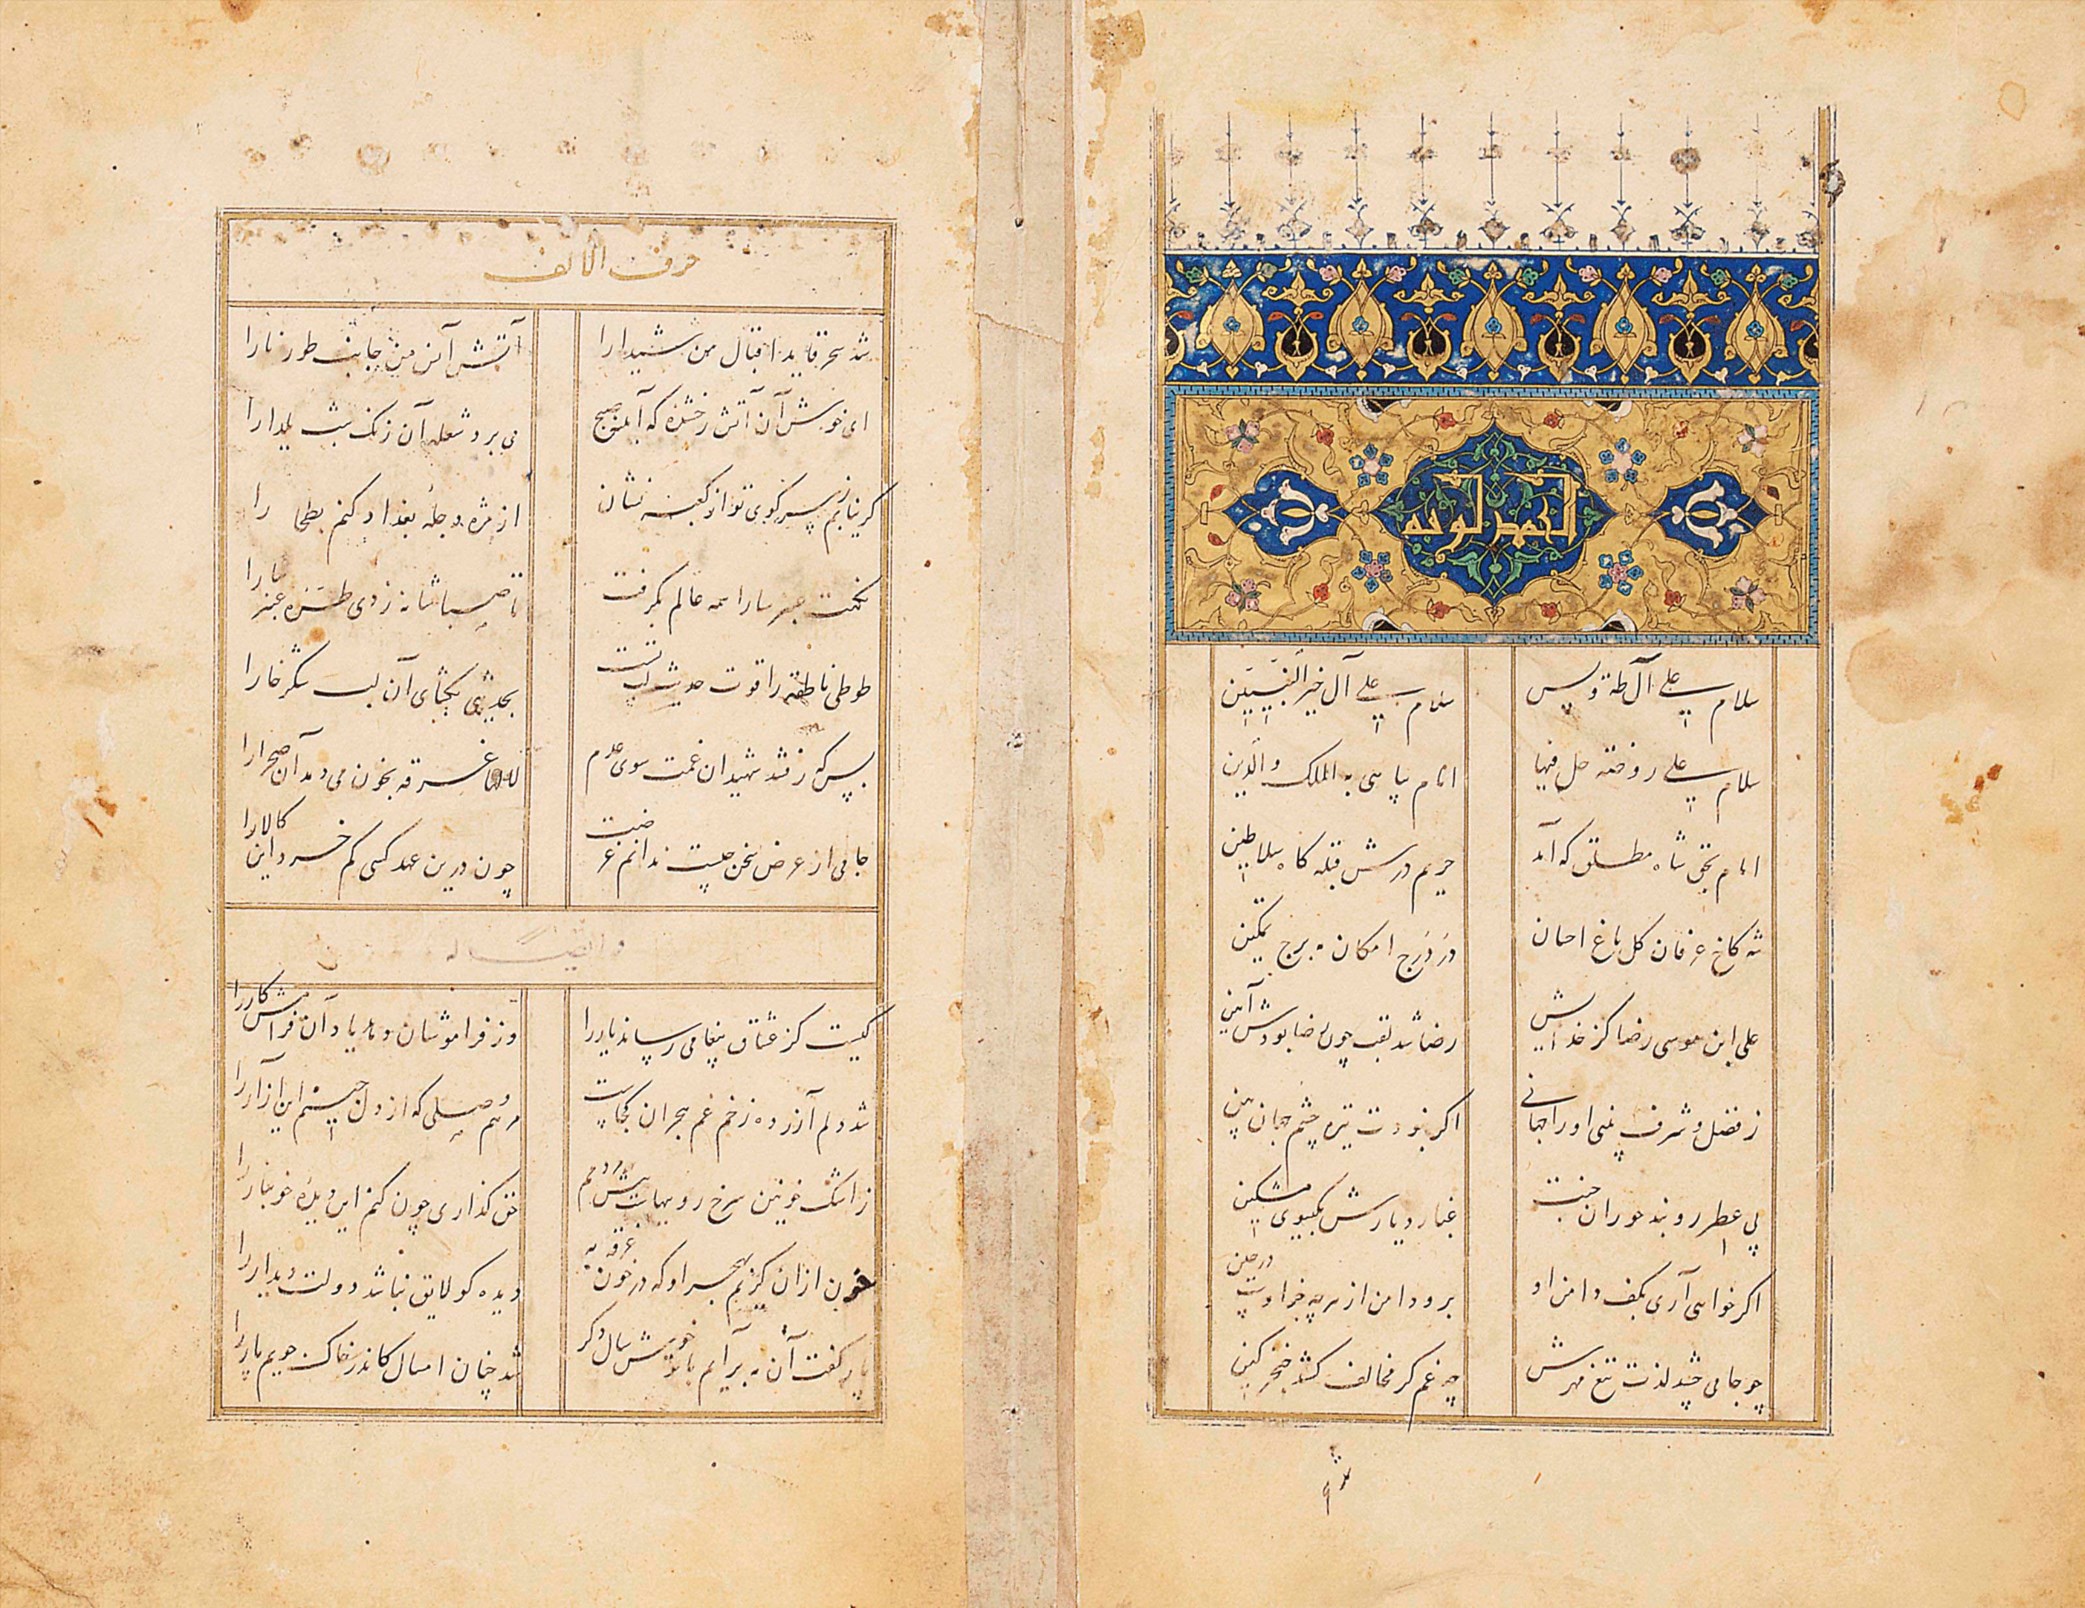 الحمد لوليه
سلام علی آل طه و یس
سلام علی آل خیر النبیین
سلام علی روضة حل فیها
امام یباهی به الملک والدین
امام بحق شاه مطلق که آمد
حریم درش قبله کاه سلاطین
شه کاخ عرفان کل باغ احسان
در درج امکان مه برج تمکین
علی ابن موسی رضا کز خدایش
رضا شد لقب چون رضا بودش آیین
ز فضل و شرف بینی او را جهانی
اکر نبودت تیره چشم جهان بین
پی عطر روبند حوران جنت
غبار دیارش بکیسوی مشکین
اکر خواهی آری بکف دامن او
برو دامن از هر چه جز اوست درچین
چو جامی چشد لذت تیغ مهرش
چه غم کر مخالف کشد خنجر کین
حرف الالف
شد سحر قاید اقبال من شیدا را
آتش آن من جانب طور نارا
ای خوش آن آتش رخشنده که آیینه صبح
می برد شعله آن زنک شب یلدا را
کر نیابم ز سر کوی تو از کعبه نشان
از مژه دجله بغداد کنم بطحا را
نکهت عنبر سارا همه عالم بکرفت
تا صبا شانه زدی طره عنبر سا را
طوطی ناطقه را قوت حدیث لب تست
بحدیثی بکشای آن لب شکر خا را
بس که رفتند شهیدان غمت سوی عدم
لالها غرقه بخون می دمد آن صحرا را
جامی از عرض سخن چیست ندانم غرضت
چون درین عهد کسی کم خرد این کالا را
و ایضا له
کیست کز عشاق پیغامی رساند یار را
وز فراموشان دهد یاد آن فرامش کار را
شد دلم آزرده زخم غم هجران کجاست
مرهم وصلی که از دل چینم این آزار را
ز اشک خونین سرخ روییهاست پیش مردمم
حق کذاری چون کنم این دیده خونبار را
خون از آن کریم بهجر او که در خون غرقه به
دیده کو لایق نباشد دولت دیدار را
پار کفت آن مه برآیم با تو خویش سال دکر
شد چنان امسال کاندر خاک جویم پار را